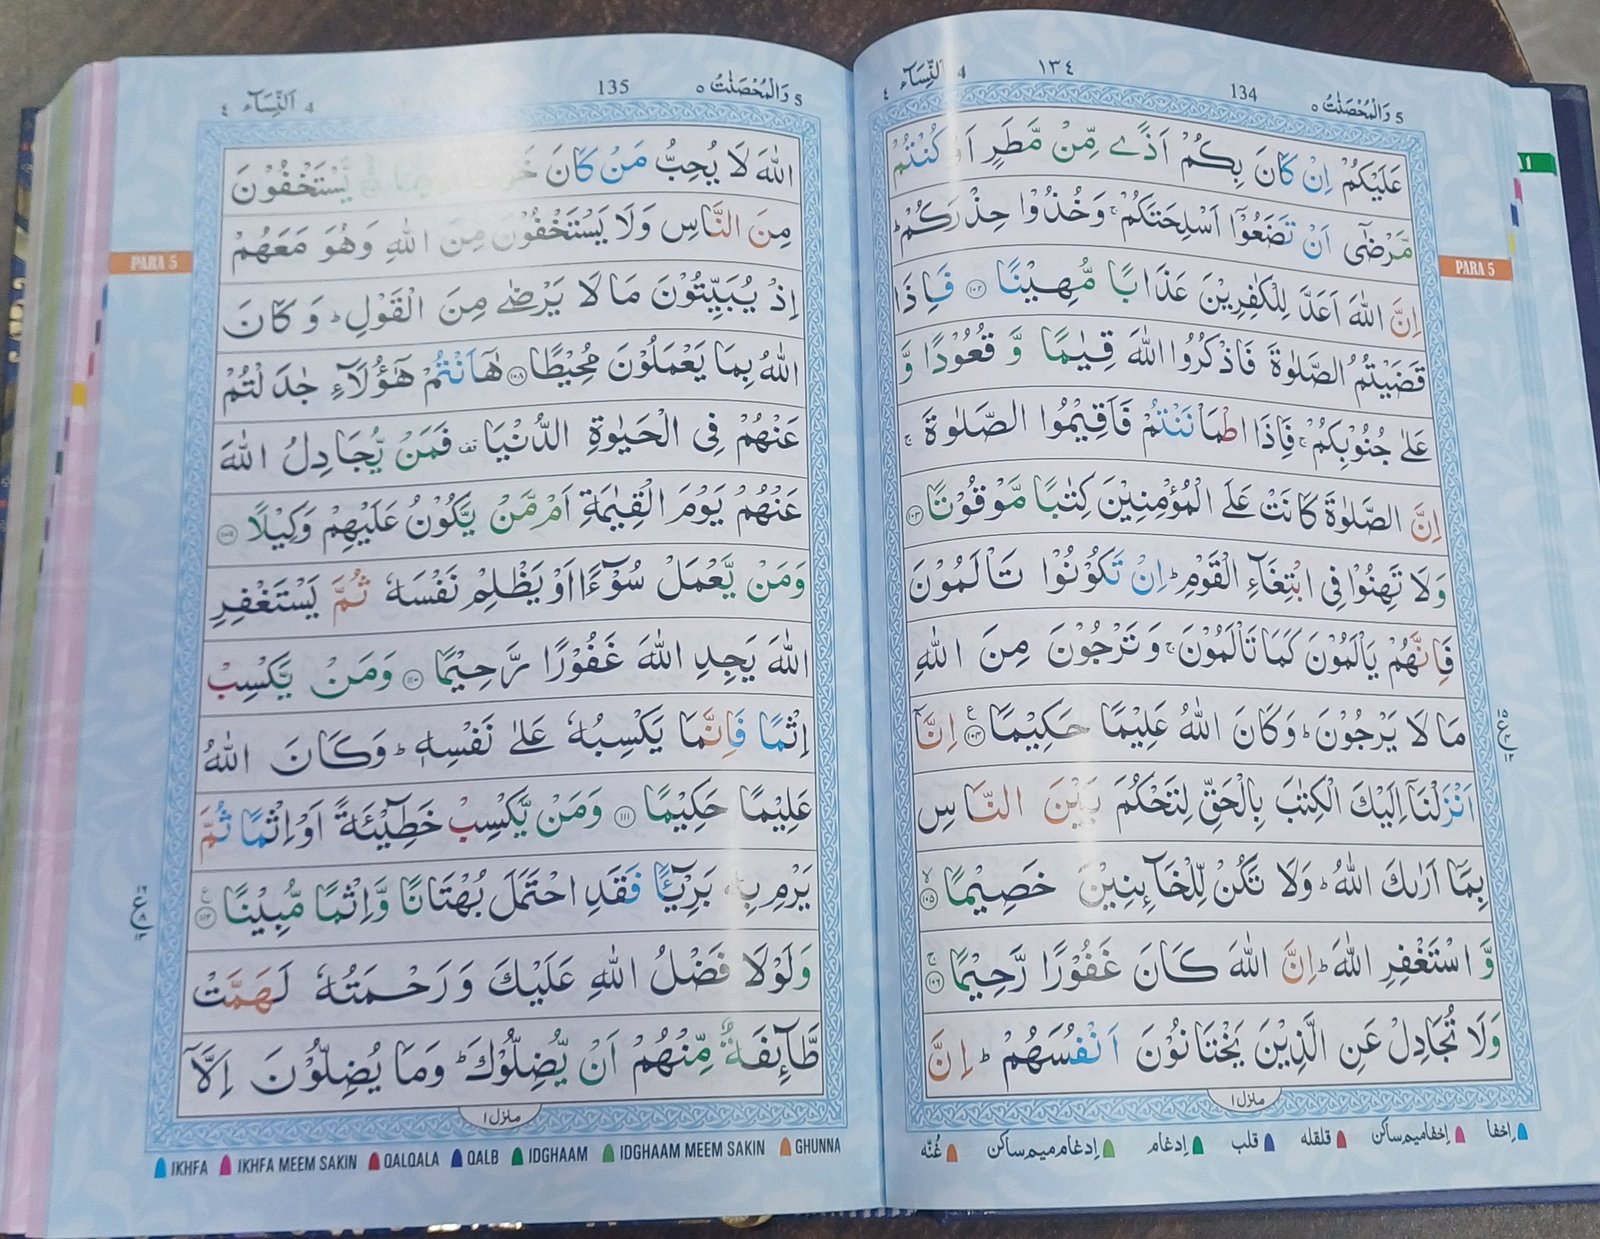 5 وَالْمُحْصَنٰتُ ٥
134
١٣٤
4 اَلنِّسَآء ٤
عَلَيْكُمْ اِنْ كَانَ بِكُمْ اَذًى مِّنْ مَّطَرٍ اَوْ كُنْتُمْ
مَّرْضٰٓى اَنْ تَضَعُوْٓا اَسْلِحَتَكُمْ ۚ وَخُذُوْا حِذْرَكُمْ ؕ
اِنَّ اللّٰهَ اَعَدَّ لِلْكٰفِرِيْنَ عَذَابًا مُّهِيْنًا ﴿۱۰۲﴾ فَاِذَا
قَضَيْتُمُ الصَّلٰوةَ فَاذْكُرُوا اللّٰهَ قِيٰمًا وَّ قُعُوْدًا وَّ
عَلٰى جُنُوْبِكُمْ ۚ فَاِذَا اطْمَاْنَنْتُمْ فَاَقِيْمُوا الصَّلٰوةَ ۚ
اِنَّ الصَّلٰوةَ كَانَتْ عَلَى الْمُؤْمِنِيْنَ كِتٰبًا مَّوْقُوْتًا ﴿۱۰۳﴾
وَلَا تَهِنُوْا فِى ابْتِغَآءِ الْقَوْمِ ؕ اِنْ تَكُوْنُوْا تَاْلَمُوْنَ
فَاِنَّهُمْ يَاْلَمُوْنَ كَمَا تَاْلَمُوْنَ ۚ وَ تَرْجُوْنَ مِنَ اللّٰهِ
مَا لَا يَرْجُوْنَ ؕ وَكَانَ اللّٰهُ عَلِيْمًا حَكِيْمًا ﴿۱۰۴﴾ اِنَّآ
اَنْزَلْنَآ اِلَيْكَ الْكِتٰبَ بِالْحَقِّ لِتَحْكُمَ بَيْنَ النَّاسِ
بِمَآ اَرٰىكَ اللّٰهُ ؕ وَلَا تَكُنْ لِّلْخَآئِنِيْنَ خَصِيْمًا ﴿۱۰۵﴾
وَّ اسْتَغْفِرِ اللّٰهَ ؕ اِنَّ اللّٰهَ كَانَ غَفُوْرًا رَّحِيْمًا ﴿۱۰۶﴾
وَلَا تُجَادِلْ عَنِ الَّذِيْنَ يَخْتَانُوْنَ اَنْفُسَهُمْ ؕ اِنَّ
منزل ١
اِخفا اِخفامیم ساکن قلقله قلب اِدغام اِدغام میم ساکن غُنّه
PARA 5
1
5 وَالْمُحْصَنٰتُ ٥
135
4 اَلنِّسَآء ٤
اللّٰهَ لَا يُحِبُّ مَنْ كَانَ يَسْتَخْفُوْنَ
مِنَ النَّاسِ وَلَا يَسْتَخْفُوْنَ مِنَ اللّٰهِ وَهُوَ مَعَهُمْ
اِذْ يُبَيِّتُوْنَ مَا لَا يَرْضٰى مِنَ الْقَوْلِ ؕ وَ كَانَ
اللّٰهُ بِمَا يَعْمَلُوْنَ مُحِيْطًا ﴿۱۰۸﴾ هٰٓاَنْتُمْ هٰٓؤُلَآءِ جٰدَلْتُمْ
عَنْهُمْ فِى الْحَيٰوةِ الدُّنْيَا فَمَنْ يُّجَادِلُ اللّٰهَ
عَنْهُمْ يَوْمَ الْقِيٰمَةِ اَمْ مَّنْ يَّكُوْنُ عَلَيْهِمْ وَكِيْلًا ﴿۱۰۹﴾
وَمَنْ يَّعْمَلْ سُوْٓءًا اَوْ يَظْلِمْ نَفْسَهٗ ثُمَّ يَسْتَغْفِرِ
اللّٰهَ يَجِدِ اللّٰهَ غَفُوْرًا رَّحِيْمًا ﴿۱۱۰﴾ وَمَنْ يَّكْسِبْ
اِثْمًا فَاِنَّمَا يَكْسِبُهٗ عَلٰى نَفْسِهٖ ؕ وَكَانَ اللّٰهُ
عَلِيْمًا حَكِيْمًا ﴿۱۱۱﴾ وَمَنْ يَّكْسِبْ خَطِيْٓئَةً اَوْ اِثْمًا ثُمَّ
يَرْمِ بِهٖ بَرِيْٓـًٔا فَقَدِ احْتَمَلَ بُهْتَانًا وَّاِثْمًا مُّبِيْنًا ﴿۱۱۲﴾
وَلَوْلَا فَضْلُ اللّٰهِ عَلَيْكَ وَرَحْمَتُهٗ لَهَمَّتْ
طَّآئِفَةٌ مِّنْهُمْ اَنْ يُّضِلُّوْكَ ؕ وَمَا يُضِلُّوْنَ اِلَّآ
منزل ١
IKHFA IKHFA MEEM SAKIN QALQALA QALB IDGHAAM IDGHAAM MEEM SAKIN GHUNNA
PARA 5